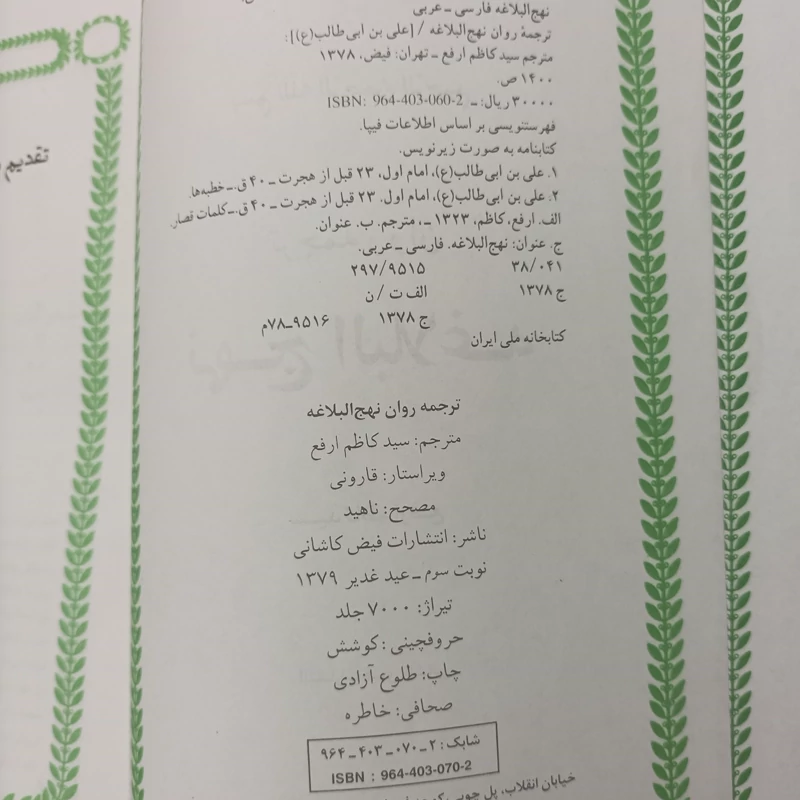 نهج‌البلاغه فارسی ـ عربی
ترجمهٔ روان نهج‌البلاغه / [علی بن ابی‌طالب(ع)]:
مترجم سید کاظم ارفع ـ تهران: فیض، ۱۳۷۸
۱۴۰۰ ص.
۳۰۰۰۰ ریال: ـ ISBN: 964-403-060-2
فهرستنویسی بر اساس اطلاعات فیپا.
کتابنامه به صورت زیرنویس.
۱. علی بن ابی‌طالب(ع)، امام اول، ۲۳ قبل از هجرت ـ ۴۰ ق. ـ خطبه‌ها.
۲. علی بن ابی‌طالب(ع)، امام اول. ۲۳ قبل از هجرت ـ ۴۰ ق. ـ کلمات قصار.
الف. ارفع، کاظم، ۱۳۲۳ ـ، مترجم. ب. عنوان.
ج. عنوان: نهج‌البلاغه. فارسی ـ عربی.
۳۸/۰۴۱ ۲۹۷/۹۵۱۵
ج ۱۳۷۸ الف ت / ن
ج ۱۳۷۸ ۹۵۱۶ـ۷۸م
کتابخانه ملی ایران
ترجمه روان نهج‌البلاغه
مترجم: سید کاظم ارفع
ویراستار: قارونی
مصحح: ناهید
ناشر: انتشارات فیض کاشانی
نوبت سوم ـ عید غدیر ۱۳۷۹
تیراژ: ۷۰۰۰ جلد
حروفچینی: کوشش
چاپ: طلوع آزادی
صحافی: خاطره
شابک: ۲ ـ ۰۷۰ ـ ۴۰۳ ـ ۹۶۴
ISBN : 964-403-070-2
خیابان انقلاب، پل چوبی،
تقدیم